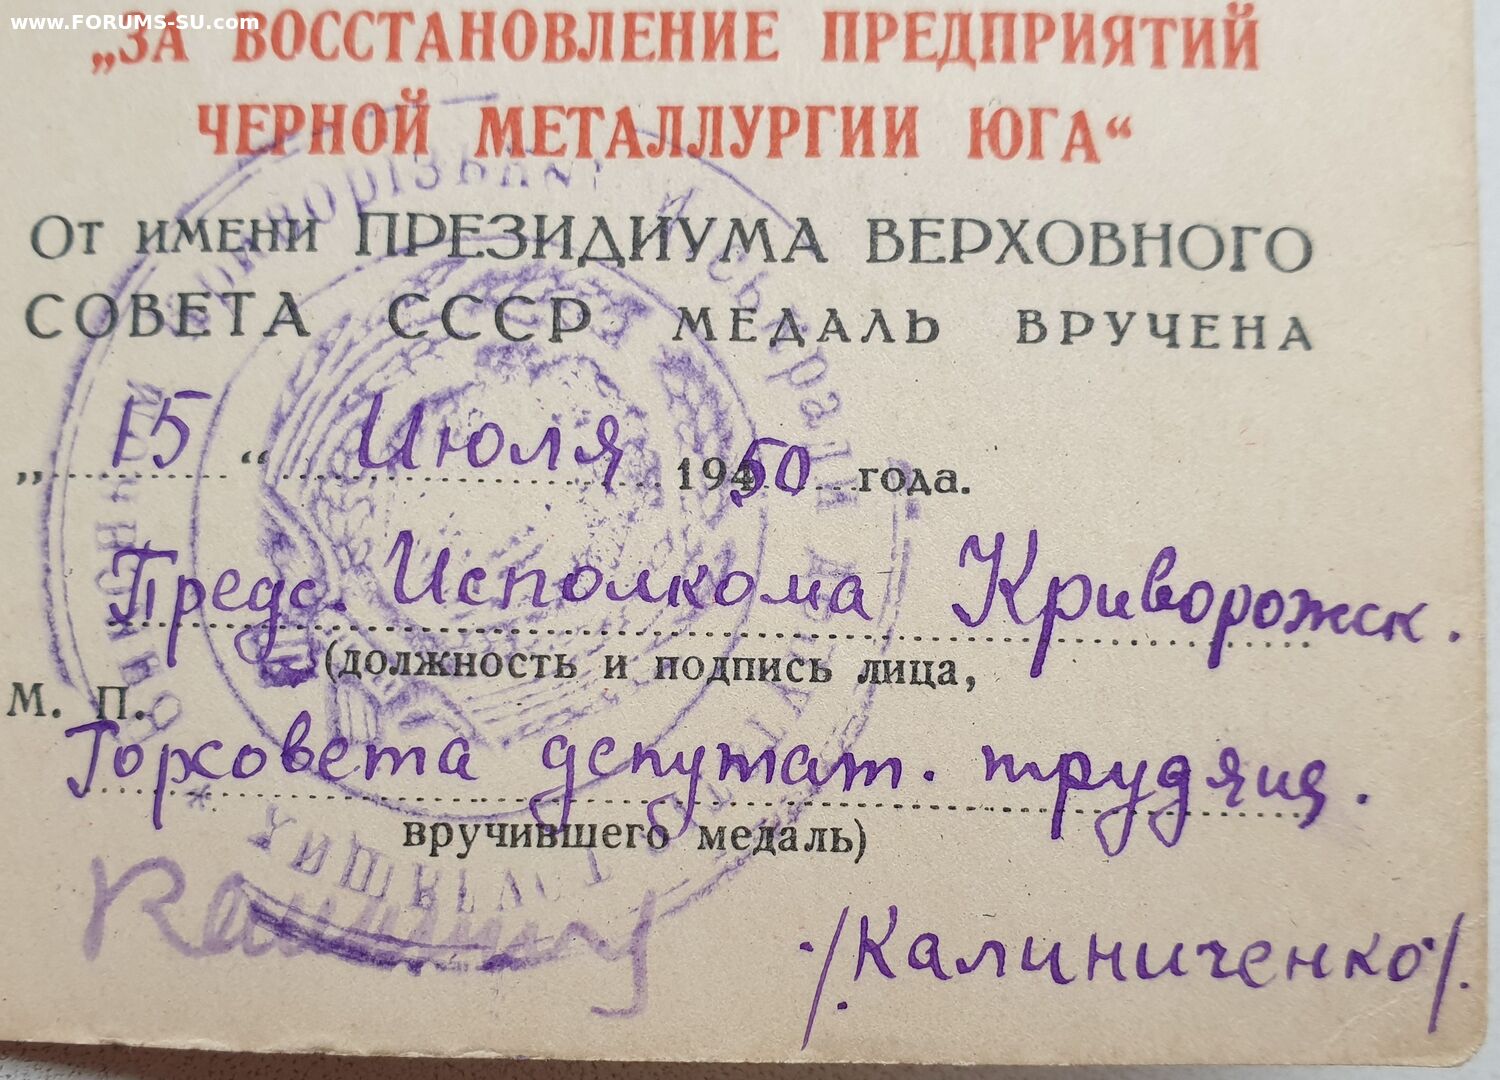 www.FORUMS-SU.com
„ЗА ВОССТАНОВЛЕНИЕ ПРЕДПРИЯТИЙ
ЧЕРНОЙ МЕТАЛЛУРГИИ ЮГА“
От имени ПРЕЗИДИУМА ВЕРХОВНОГО
СОВЕТА СССР МЕДАЛЬ ВРУЧЕНА
„15“ Июля 1950 года.
Предс. Исполкома Криворожск.
(должность и подпись лица,
М. П.
Горсовета депутат. трудящ.
вручившего медаль)
/Калиниченко/.